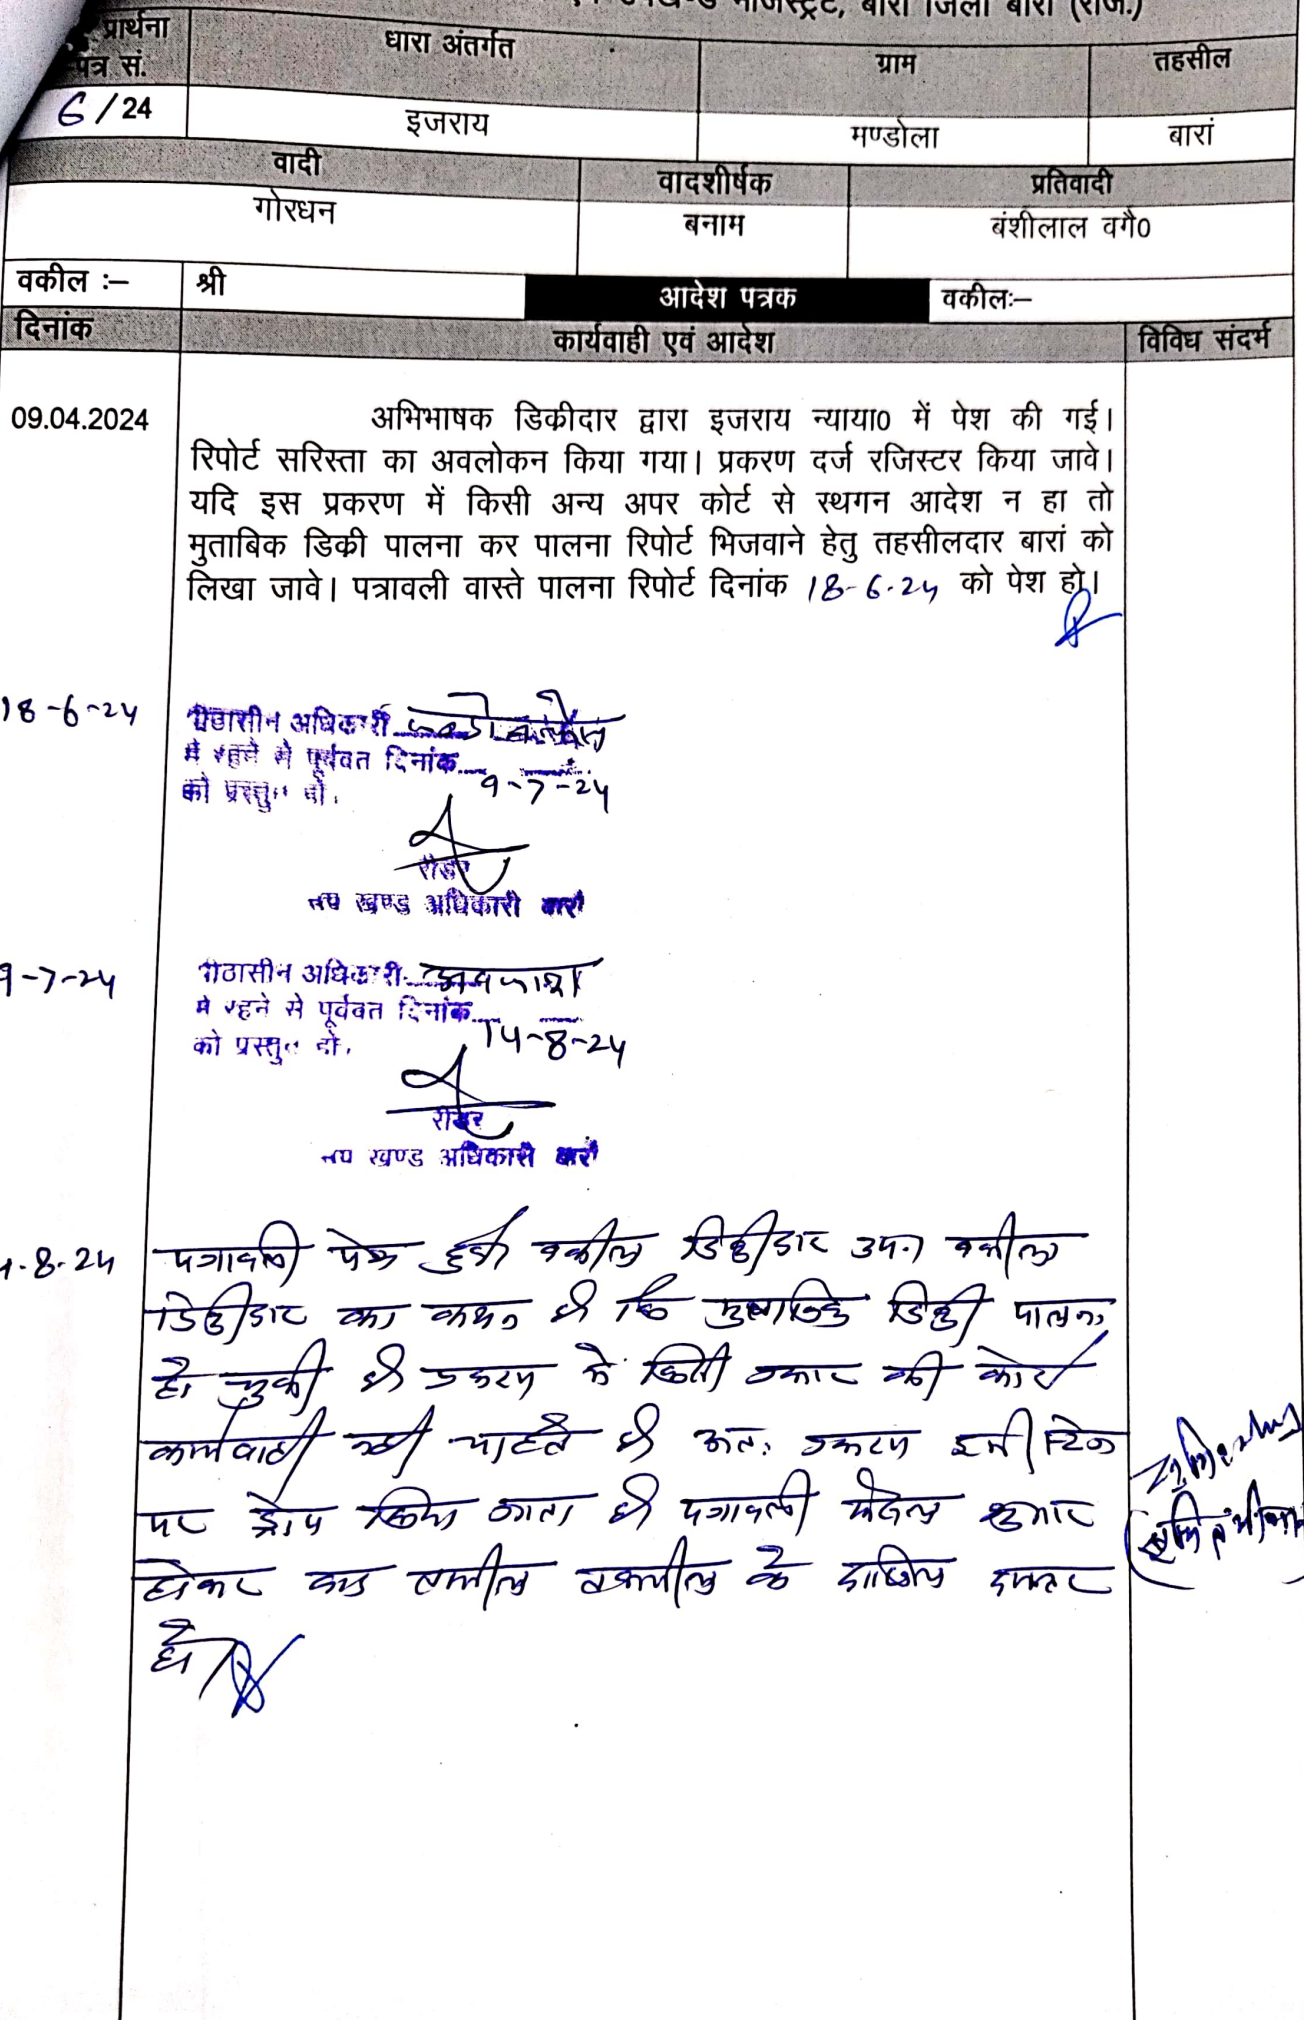 मजिस्ट्रेट, बारां जिला बारां (राज.)
प्रार्थना पत्र सं. धारा अंतर्गत ग्राम तहसील
6/24 इजराय मण्डोला बारां
वादी वादशीर्षक प्रतिवादी
गोरधन बनाम बंशीलाल वगै0
वकील :– श्री आदेश पत्रक वकीलः–
दिनांक कार्यवाही एवं आदेश विविध संदर्भ
09.04.2024 अभिभाषक डिकीदार द्वारा इजराय न्याया0 में पेश की गई।
रिपोर्ट सरिस्ता का अवलोकन किया गया। प्रकरण दर्ज रजिस्टर किया जावे।
यदि इस प्रकरण में किसी अन्य अपर कोर्ट से स्थगन आदेश न हा तो
मुताबिक डिकी पालना कर पालना रिपोर्ट भिजवाने हेतु तहसीलदार बारां को
लिखा जावे। पत्रावली वास्ते पालना रिपोर्ट दिनांक 18-6-24 को पेश हो।
18-6-24 पीठासीन अधिकारी
में रहने से पूर्ववत दिनांक 9-7-24
को प्रस्तुत हो.
रीडर
उप खण्ड अधिकारी बारां
9-7-24 पीठासीन अधिकारी अवकाश
में रहने से पूर्ववत दिनांक 14-8-24
को प्रस्तुत हो.
रीडर
उप खण्ड अधिकारी बारां
4.8.24 पत्रावली पेश हुयी वकील डिक्रीदार उप० वकील
डिक्रीदार का कथन है कि मुताबिक डिक्री पालना
हो चुकी है प्रकरण में किसी प्रकार की कोई
कार्यवाही नही चाहते है अतः प्रकरण इसी स्टेज
पर ड्रोप किया जाता है पत्रावली फैसल शुमार
होकर बाद तकमील के दाखिल दफ्तर
हो।